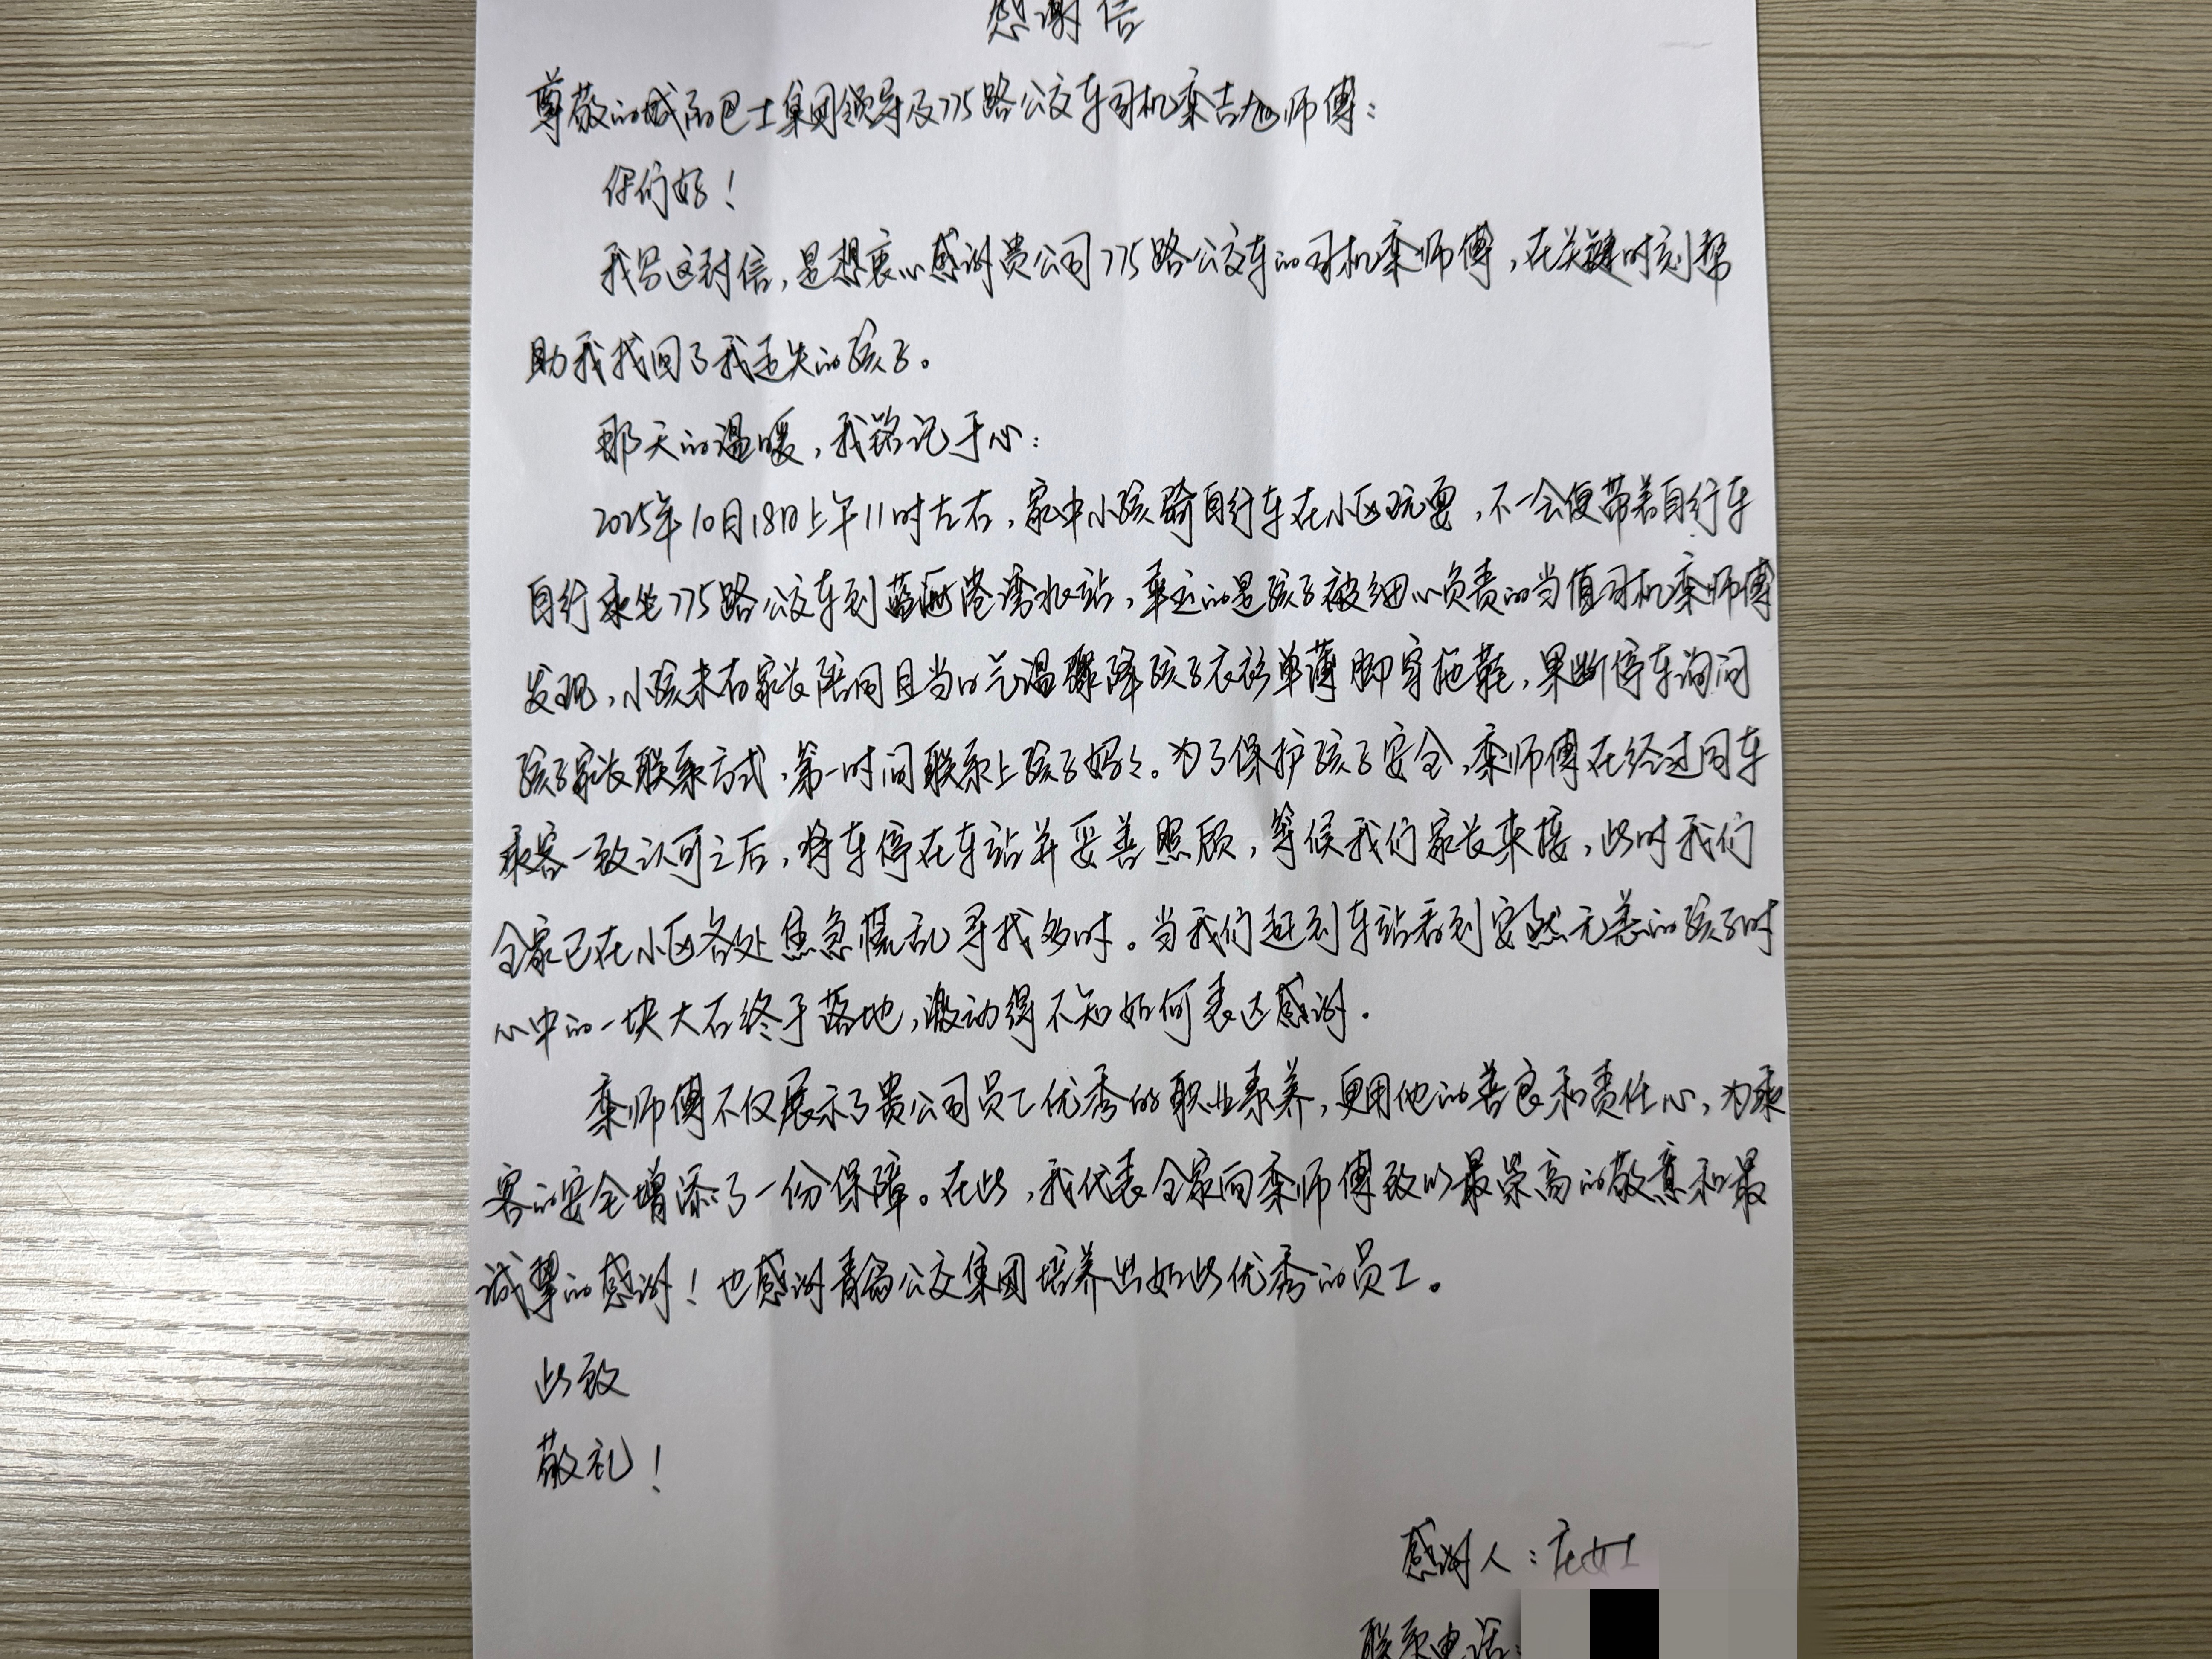 感谢信
尊敬的城际巴士集团领导及775路公交车司机栾吉旭师傅：
你们好！
我写这封信，是想衷心感谢贵公司775路公交车的司机栾师傅，在关键时刻帮
助我找回了我丢失的孩子。
那天的温暖，我铭记于心：
2025年10月18日上午11时左右，家中小孩骑自行车在小区玩耍，不一会便带着自行车
自行乘坐775路公交车到蓝湾港湾站，幸运的是孩子被细心负责的当值司机栾师傅
发现，小孩未有家长陪同且当时气温骤降孩子衣衫单薄脚穿拖鞋，果断停车询问
孩子家长联系方式，第一时间联系上孩子妈妈。为了保护孩子安全，栾师傅在经过同车
乘客一致认可之后，将车停在车站并妥善照顾，等候我们家长来接，此时我们
全家已在小区各处焦急慌乱寻找多时。当我们赶到车站看到安然无恙的孩子时
心中的一块大石终于落地，激动得不知如何表达感谢。
栾师傅不仅展示了贵公司员工优秀的职业素养，更用他的善良和责任心，为乘
客的安全增添了一份保障。在此，我代表全家向栾师傅致以最崇高的敬意和最
诚挚的感谢！也感谢青岛公交集团培养出如此优秀的员工。
此致
敬礼！
感谢人：庄女士
联系电话：